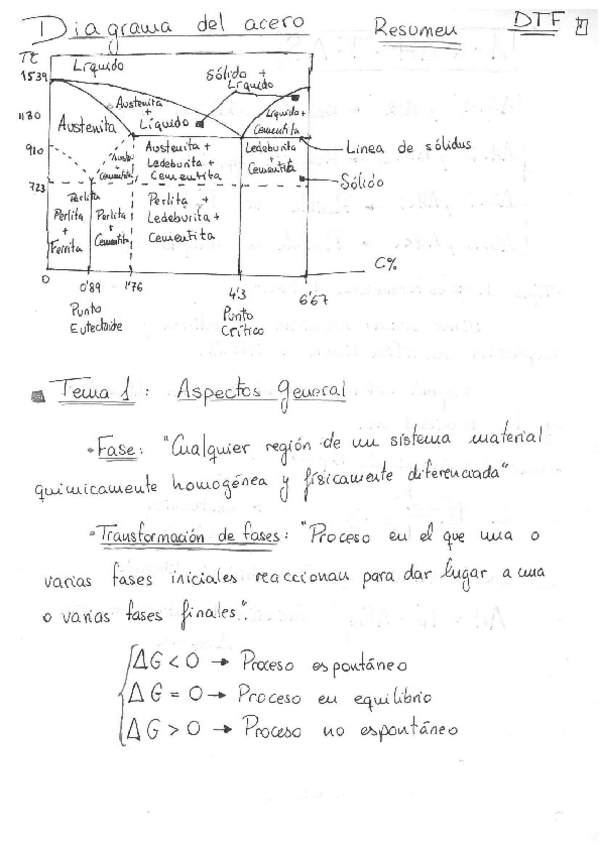 Diagrama del acero Resumen DTF
Tª
1539
1130
910
723
0
Líquido
Sólido +
Líquido
Austenita
+
Líquido
Austenita
Líquido +
Cementita
Austenita +
Ledeburita +
Cementita
Ledeburita
+
Cementita
Línea de sólidus
Sólido
Perlita
Perlita
+
Ferrita
Perlita
+
Cementita
Perlita +
Ledeburita +
Cementita
C%
0'89 1'76 4'3 6'67
Punto
Eutectoide
Punto
Crítico
Tema 1: Aspectos general
Fase: "Cualquier región de un sistema material
quimicamente homogénea y físicamente diferenciada"
Transformación de fases: "Proceso en el que una o
varias fases iniciales reaccionan para dar lugar a una
o varias fases finales".
ΔG < 0 → Proceso espontáneo
ΔG = 0 → Proceso en equilibrio
ΔG > 0 → Proceso no espontáneo